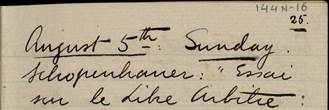 144N-16
25.
August 5th: Sunday.
Schopenhauer: "Essai
sur le Libre Arbitre: